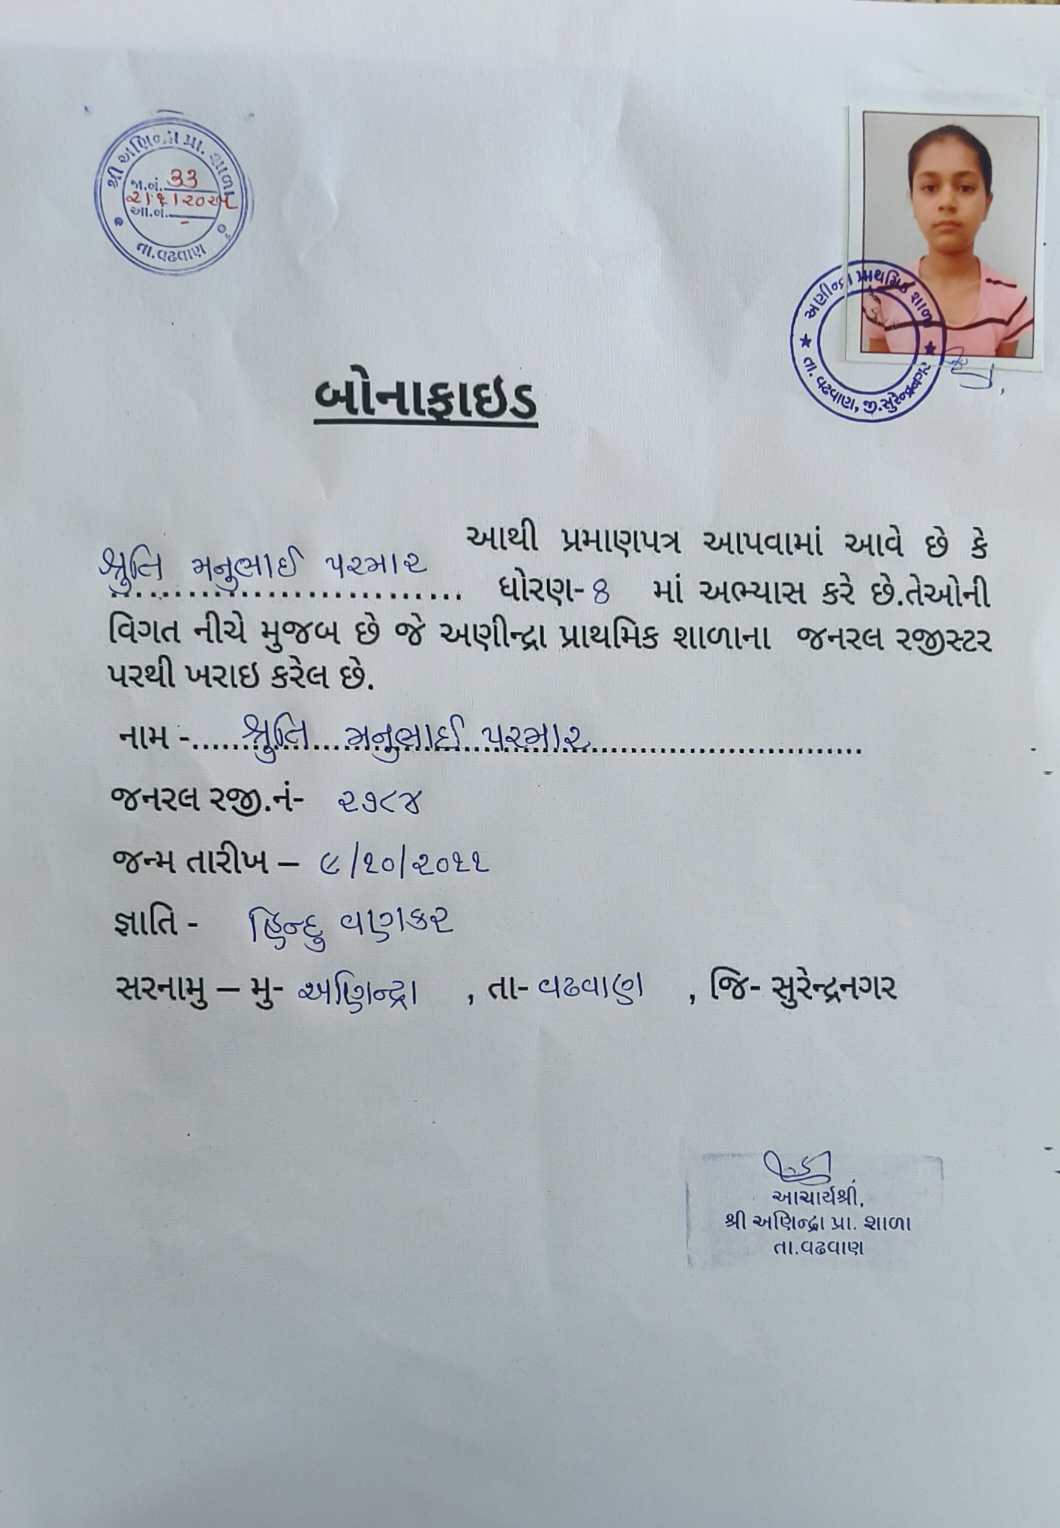 શ્રી અણિન્દ્રા પ્રા. શાળા
જા.નં. 33
આ.નં. -
તા.વઢવાણ
અણીન્દ્રા પ્રાથમિક શાળા
તા. વઢવાણ, જી.સુરેન્દ્રનગર
બોનાફાઇડ
આથી પ્રમાણપત્ર આપવામાં આવે છે કે
શ્રુતિ મનુભાઈ પરમાર ધોરણ-8 માં અભ્યાસ કરે છે.તેઓની
વિગત નીચે મુજબ છે જે અણીન્દ્રા પ્રાથમિક શાળાના જનરલ રજીસ્ટર
પરથી ખરાઇ કરેલ છે.
નામ -શ્રુતિ મનુભાઈ પરમાર
જનરલ રજી.નં- ૨૭૮૪
જન્મ તારીખ – ૯/૧૦/૨૦૧૧
જ્ઞાતિ - હિન્દુ વણકર
સરનામુ – મુ- અણિન્દ્રા , તા- વઢવાણ , જિ- સુરેન્દ્રનગર
આચાર્યશ્રી,
શ્રી અણિન્દ્રા પ્રા. શાળા
તા.વઢવાણ